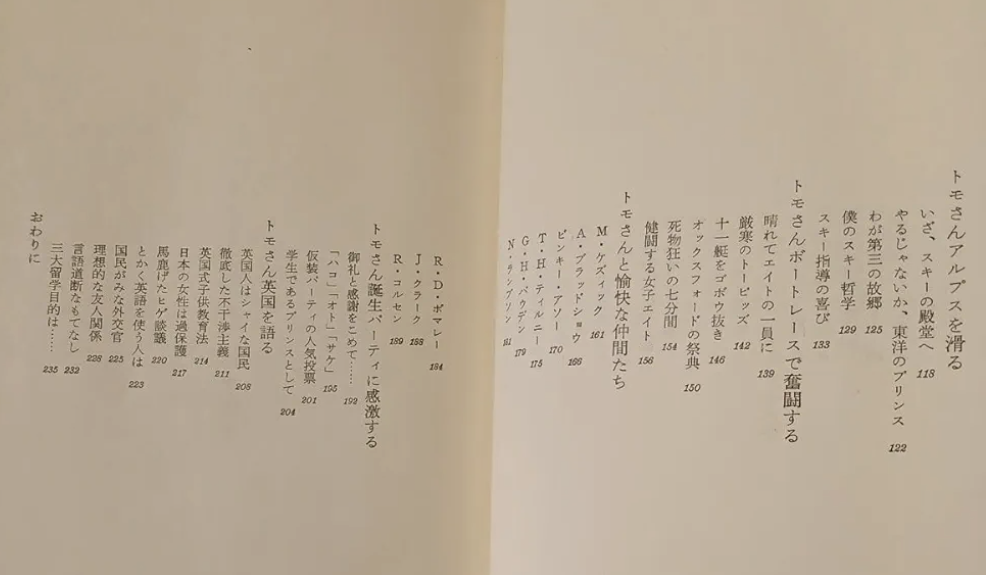 トモさんアルプスを滑る
いざ、スキーの殿堂へ 118
やるじゃないか、東洋のプリンス 122
わが第三の故郷 125
僕のスキー哲学 129
スキー指導の喜び 133
トモさんボートレースで奮闘する
晴れてエイトの一員に 139
厳寒のトーピッズ 142
十一艇をゴボウ抜き 146
オックスフォードの祭典 150
死物狂いの七分間 154
健闘する女子エイト 156
トモさんと愉快な仲間たち
M・ケズィック 161
A・ブラッドショウ 166
ピンキー・アソー 170
T・H・ティルニー 175
G・H・バウデン 179
N・ランプソン 181
R・D・ポマレー 184
J・クラーク 188
R・コルセン 189
トモさん誕生パーティに感激する
御礼と感謝をこめて…… 192
「ハコ」「オト」「サケ」 195
仮装パーティの人気投票 201
学生であるプリンスとして 204
トモさん英国を語る
英国人はシャイな国民 208
徹底した不干渉主義 211
英国式子供教育法 214
日本の女性は過保護 217
馬鹿げたヒゲ談議 220
とかく英語を使う人は 223
国民がみな外交官 225
理想的な友人関係 228
言語道断なもてなし 232
三大留学目的は…… 235
おわりに